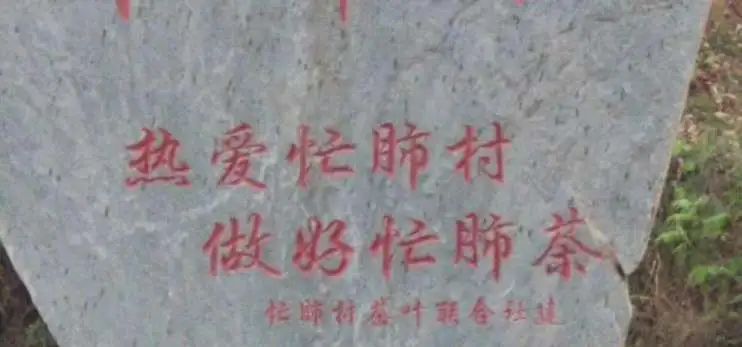 热爱忙肺村
做好忙肺茶
忙肺村茶叶联合社建